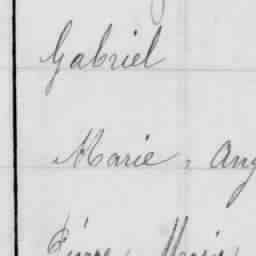 Gabriel
Marie, Ang
Pierre, Marie,